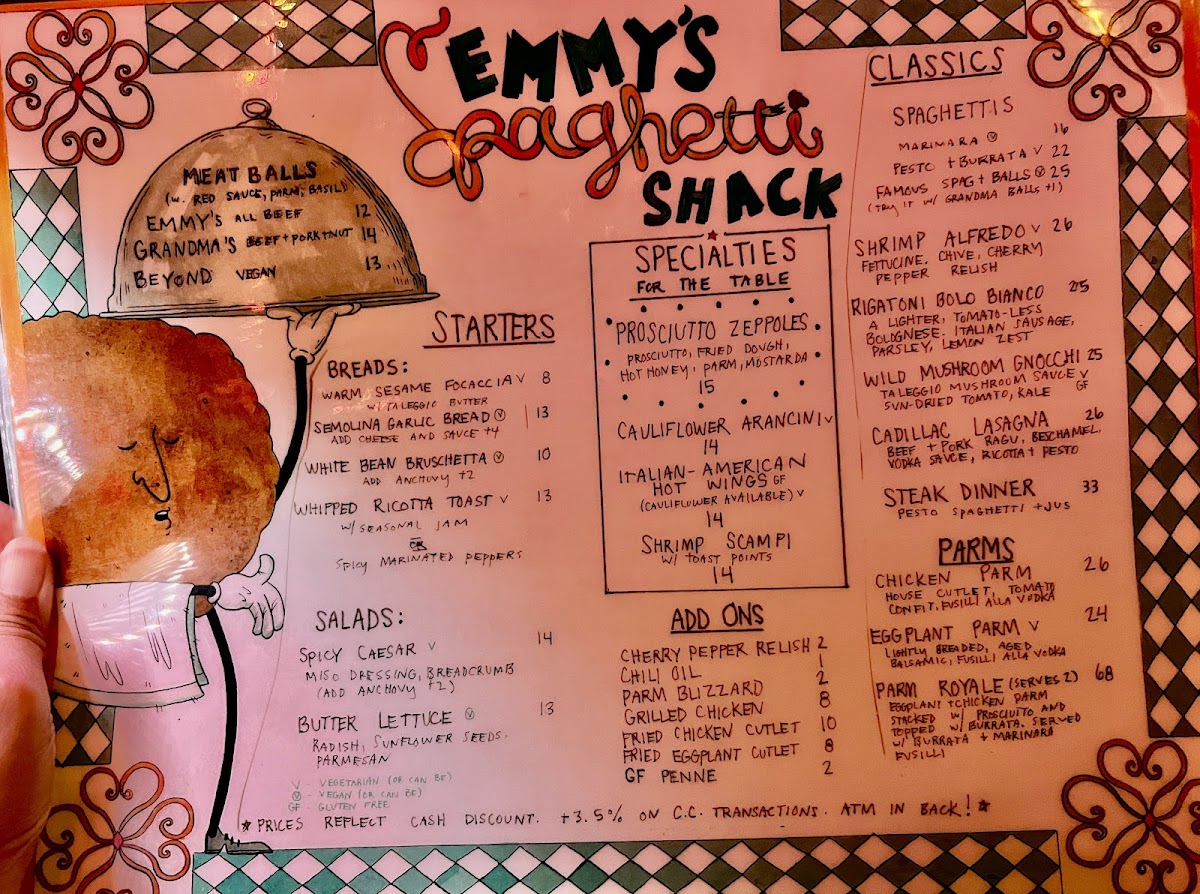 EMMY'S
Spaghetti
SHACK
MEAT BALLS
(W. RED SAUCE, PARM, BASIL)
EMMY'S ALL BEEF 12
GRANDMA'S BEEF + PORK + NUT 14
BEYOND VEGAN 13
STARTERS
BREADS:
WARM SESAME FOCACCIA V 8
W/ TALEGGIO BUTTER
SEMOLINA GARLIC BREAD Ⓥ 13
ADD CHEESE AND SAUCE +4
WHITE BEAN BRUSCHETTA Ⓥ 10
ADD ANCHOVY +2
WHIPPED RICOTTA TOAST V 13
W/ SEASONAL JAM
OR
SPICY MARINATED PEPPERS
SALADS:
SPICY CAESAR V 14
MISO DRESSING, BREADCRUMB
(ADD ANCHOVY +2)
BUTTER LETTUCE Ⓥ 13
RADISH, SUNFLOWER SEEDS,
PARMESAN
V - VEGETARIAN (OR CAN BE)
Ⓥ - VEGAN (OR CAN BE)
GF - GLUTEN FREE
SPECIALTIES
FOR THE TABLE
PROSCIUTTO ZEPPOLES
PROSCIUTTO, FRIED DOUGH,
HOT HONEY, PARM, MOSTARDA
15
CAULIFLOWER ARANCINI V
14
ITALIAN-AMERICAN
HOT WINGS GF
(CAULIFLOWER AVAILABLE) V
14
SHRIMP SCAMPI
W/ TOAST POINTS
14
ADD ONS
CHERRY PEPPER RELISH 2
CHILI OIL 1
PARM BLIZZARD 2
GRILLED CHICKEN 8
FRIED CHICKEN CUTLET 10
FRIED EGGPLANT CUTLET 8
GF PENNE 2
CLASSICS
SPAGHETTIS
MARINARA Ⓥ 16
PESTO + BURRATA V 22
FAMOUS SPAG + BALLS Ⓥ 25
(TRY IT W/ GRANDMA BALLS +1)
SHRIMP ALFREDO V 26
FETTUCINE, CHIVE, CHERRY
PEPPER RELISH
RIGATONI BOLO BIANCO 25
A LIGHTER, TOMATO-LESS
BOLOGNESE. ITALIAN SAUSAGE,
PARSLEY, LEMON ZEST
WILD MUSHROOM GNOCCHI 25
TALEGGIO MUSHROOM SAUCE V
SUN-DRIED TOMATO, KALE GF
CADILLAC LASAGNA 26
BEEF + PORK RAGU, BESCHAMEL,
VODKA SAUCE, RICOTTA + PESTO
STEAK DINNER 33
PESTO SPAGHETTI + JUS
PARMS
CHICKEN PARM 26
HOUSE CUTLET, TOMATO
CONFIT, FUSILLI ALLA VODKA
EGGPLANT PARM V 24
LIGHTLY BREADED, AGED
BALSAMIC, FUSILLI ALLA VODKA
PARM ROYALE (SERVES 2) 68
EGGPLANT + CHICKEN PARM
STACKED W/ PROSCIUTTO AND
TOPPED W/ BURRATA. SERVED
W/ BURRATA + MARINARA
FUSILLI
★ PRICES REFLECT CASH DISCOUNT. +3.5% ON C.C. TRANSACTIONS. ATM IN BACK! ★